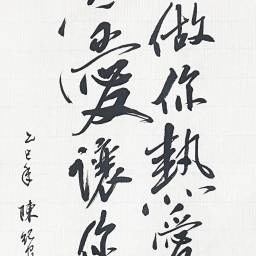 做你熱愛
愛讓你
乙巳年 陳